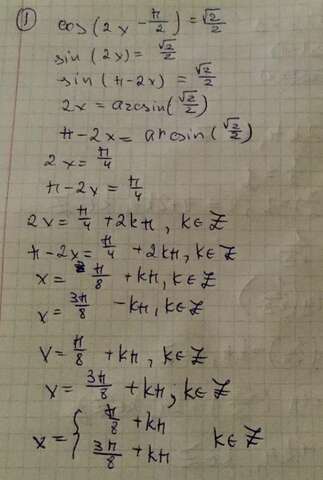 ①
cos(2x - π/2) = √2/2
sin(2x) = √2/2
sin(π-2x) = √2/2
2x = arcsin(√2/2)
π-2x = arcsin(√2/2)
2x = π/4
π-2x = π/4
2x = π/4 + 2kπ, k∈Z
π-2x = π/4 + 2kπ, k∈Z
x = π/8 + kπ, k∈Z
x = 3π/8 - kπ, k∈Z
x = π/8 + kπ, k∈Z
x = 3π/8 + kπ, k∈Z
x = { π/8 + kπ
3π/8 + kπ k∈Z